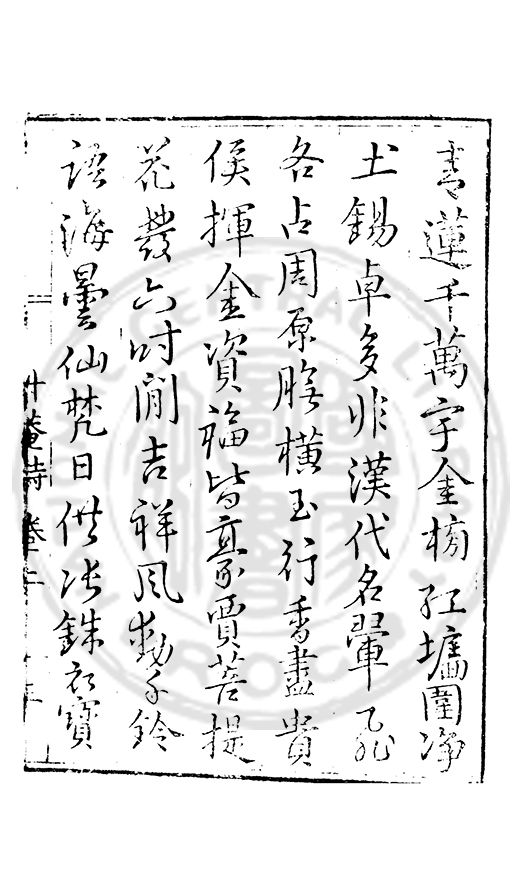 青蓮千萬宇金榜紅墻圍淨
土錫卓多非漢代名翬飛
各占周原膴橫玉行香盡貴
侯揮金資福皆豪賈菩提
花發六时閒吉祥风動千鈴
語海曇仙梵日供张銖衣寶
升菴詩 卷二